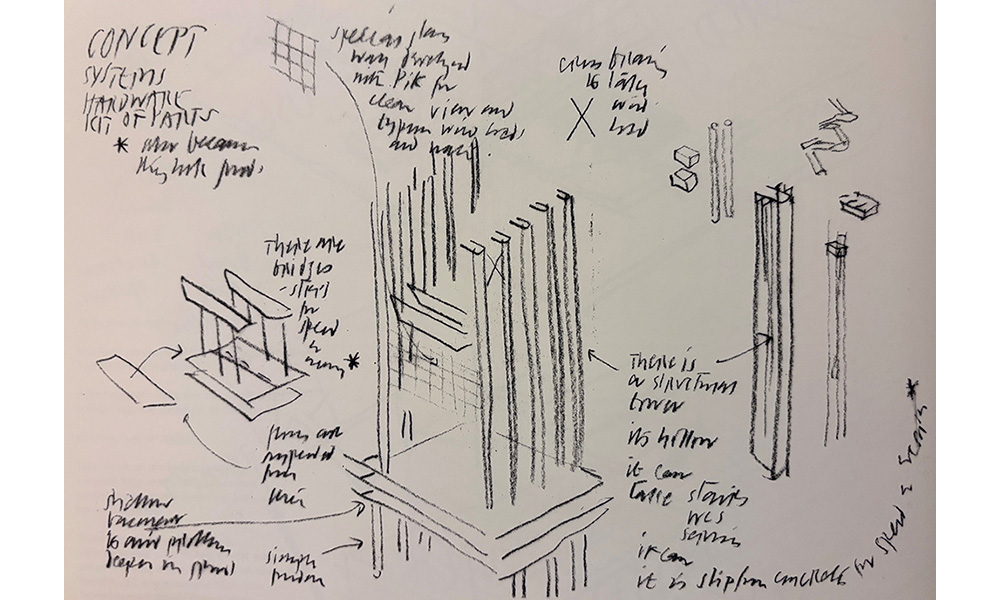 CONCEPT
SYSTEMS
HARDWARE
KIT OF PARTS
* also because
they look good.
special glass
was developed
with Pik for
clean view and
bypass wind loads
and
cross bracing
to take
wind
load
There are
bridges
- steel
for
speed
&
*
floors are
suspended
from
here
shallow
basement
to avoid problems
deeper in ground
simple
There is
a structural
tower
its hollow
it can
take stairs
WCS
services
it can
it is slipform concrete for speed & *